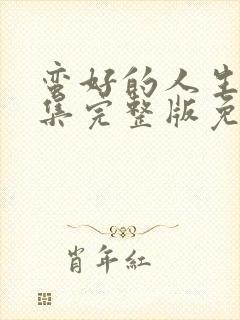 蛮好的人生
集完整版免
肖年红